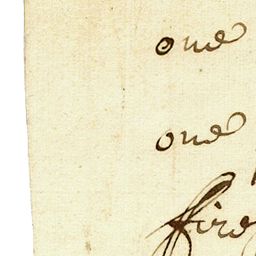 one
one
fire